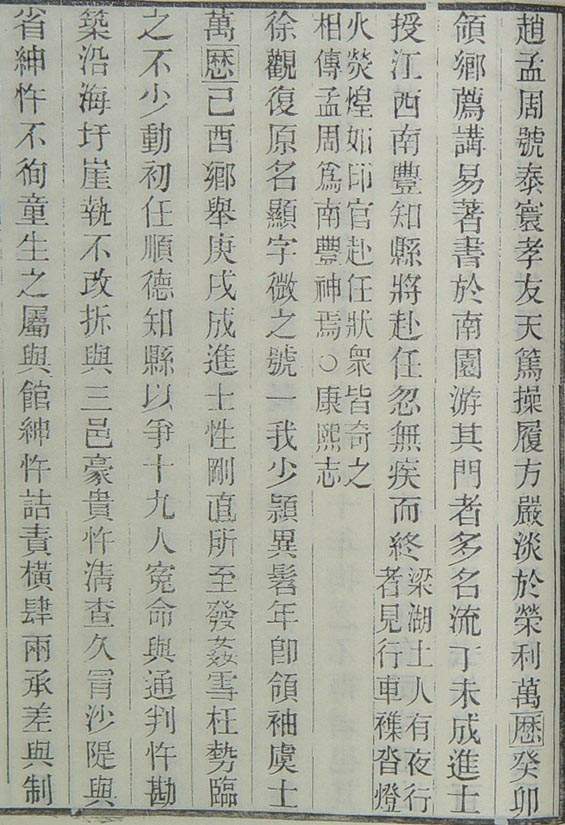 趙孟周號泰寰孝友天篤操履方嚴淡於榮利萬曆癸卯
領鄉薦講易著書於南園游其門者多名流丁未成進士
授江西南豐知縣將赴任忽無疾而終梁湖土人有夜行
者見行車襍沓燈
火熒煌如印官赴任狀衆皆奇之
相傳孟周爲南豐神焉○康熙志
徐觀復原名顯字微之號一我少穎異髫年卽領袖虞士
萬曆己酉鄉舉庚戌成進士性剛直所至發姦雪枉勢臨
之不少動初任順德知縣以爭十九人寃命與通判忤勘
築沿海圩崖執不改拆與三邑豪貴忤淸查久冒沙隄與
省紳忤不徇童生之屬與館紳忤詰責橫肆兩承差與制